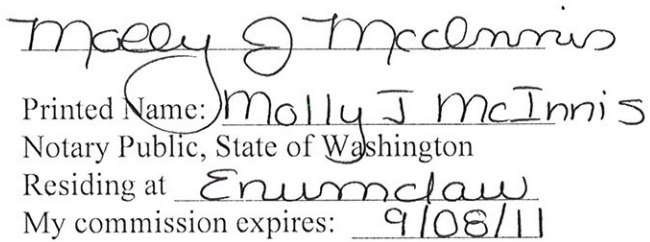 Molly J McInnis
Printed Name: Molly J McInnis
Notary Public, State of Washington
Residing at Enumclaw
My commission expires: 9/08/11